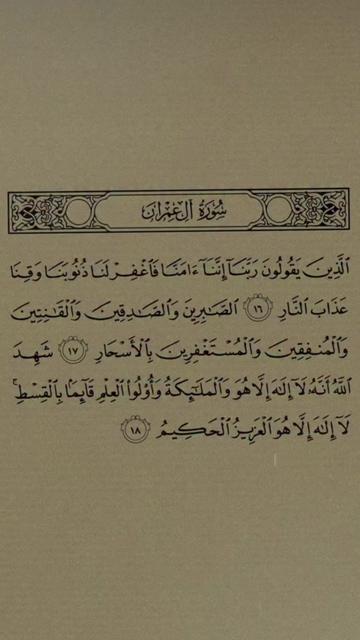 سُورَةُ آلِ عِمْرَانَ
ٱلَّذِينَ يَقُولُونَ رَبَّنَآ إِنَّنَآ ءَامَنَّا فَٱغْفِرْ لَنَا ذُنُوبَنَا وَقِنَا
عَذَابَ ٱلنَّارِ ١٦ ٱلصَّٰبِرِينَ وَٱلصَّٰدِقِينَ وَٱلْقَٰنِتِينَ
وَٱلْمُنفِقِينَ وَٱلْمُسْتَغْفِرِينَ بِٱلْأَسْحَارِ ١٧ شَهِدَ
ٱللَّهُ أَنَّهُۥ لَآ إِلَٰهَ إِلَّا هُوَ وَٱلْمَلَٰٓئِكَةُ وَأُو۟لُوا۟ ٱلْعِلْمِ قَآئِمًۢا بِٱلْقِسْطِ ۚ
لَآ إِلَٰهَ إِلَّا هُوَ ٱلْعَزِيزُ ٱلْحَكِيمُ ١٨